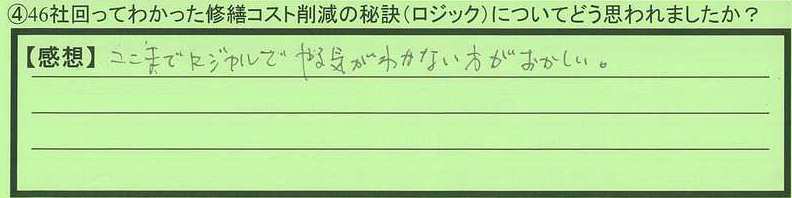 ④46社回ってわかった修繕コスト削減の秘訣（ロジック）についてどう思われましたか？
【感想】ここまでロジカルでやる気がわかない方がおかしい。